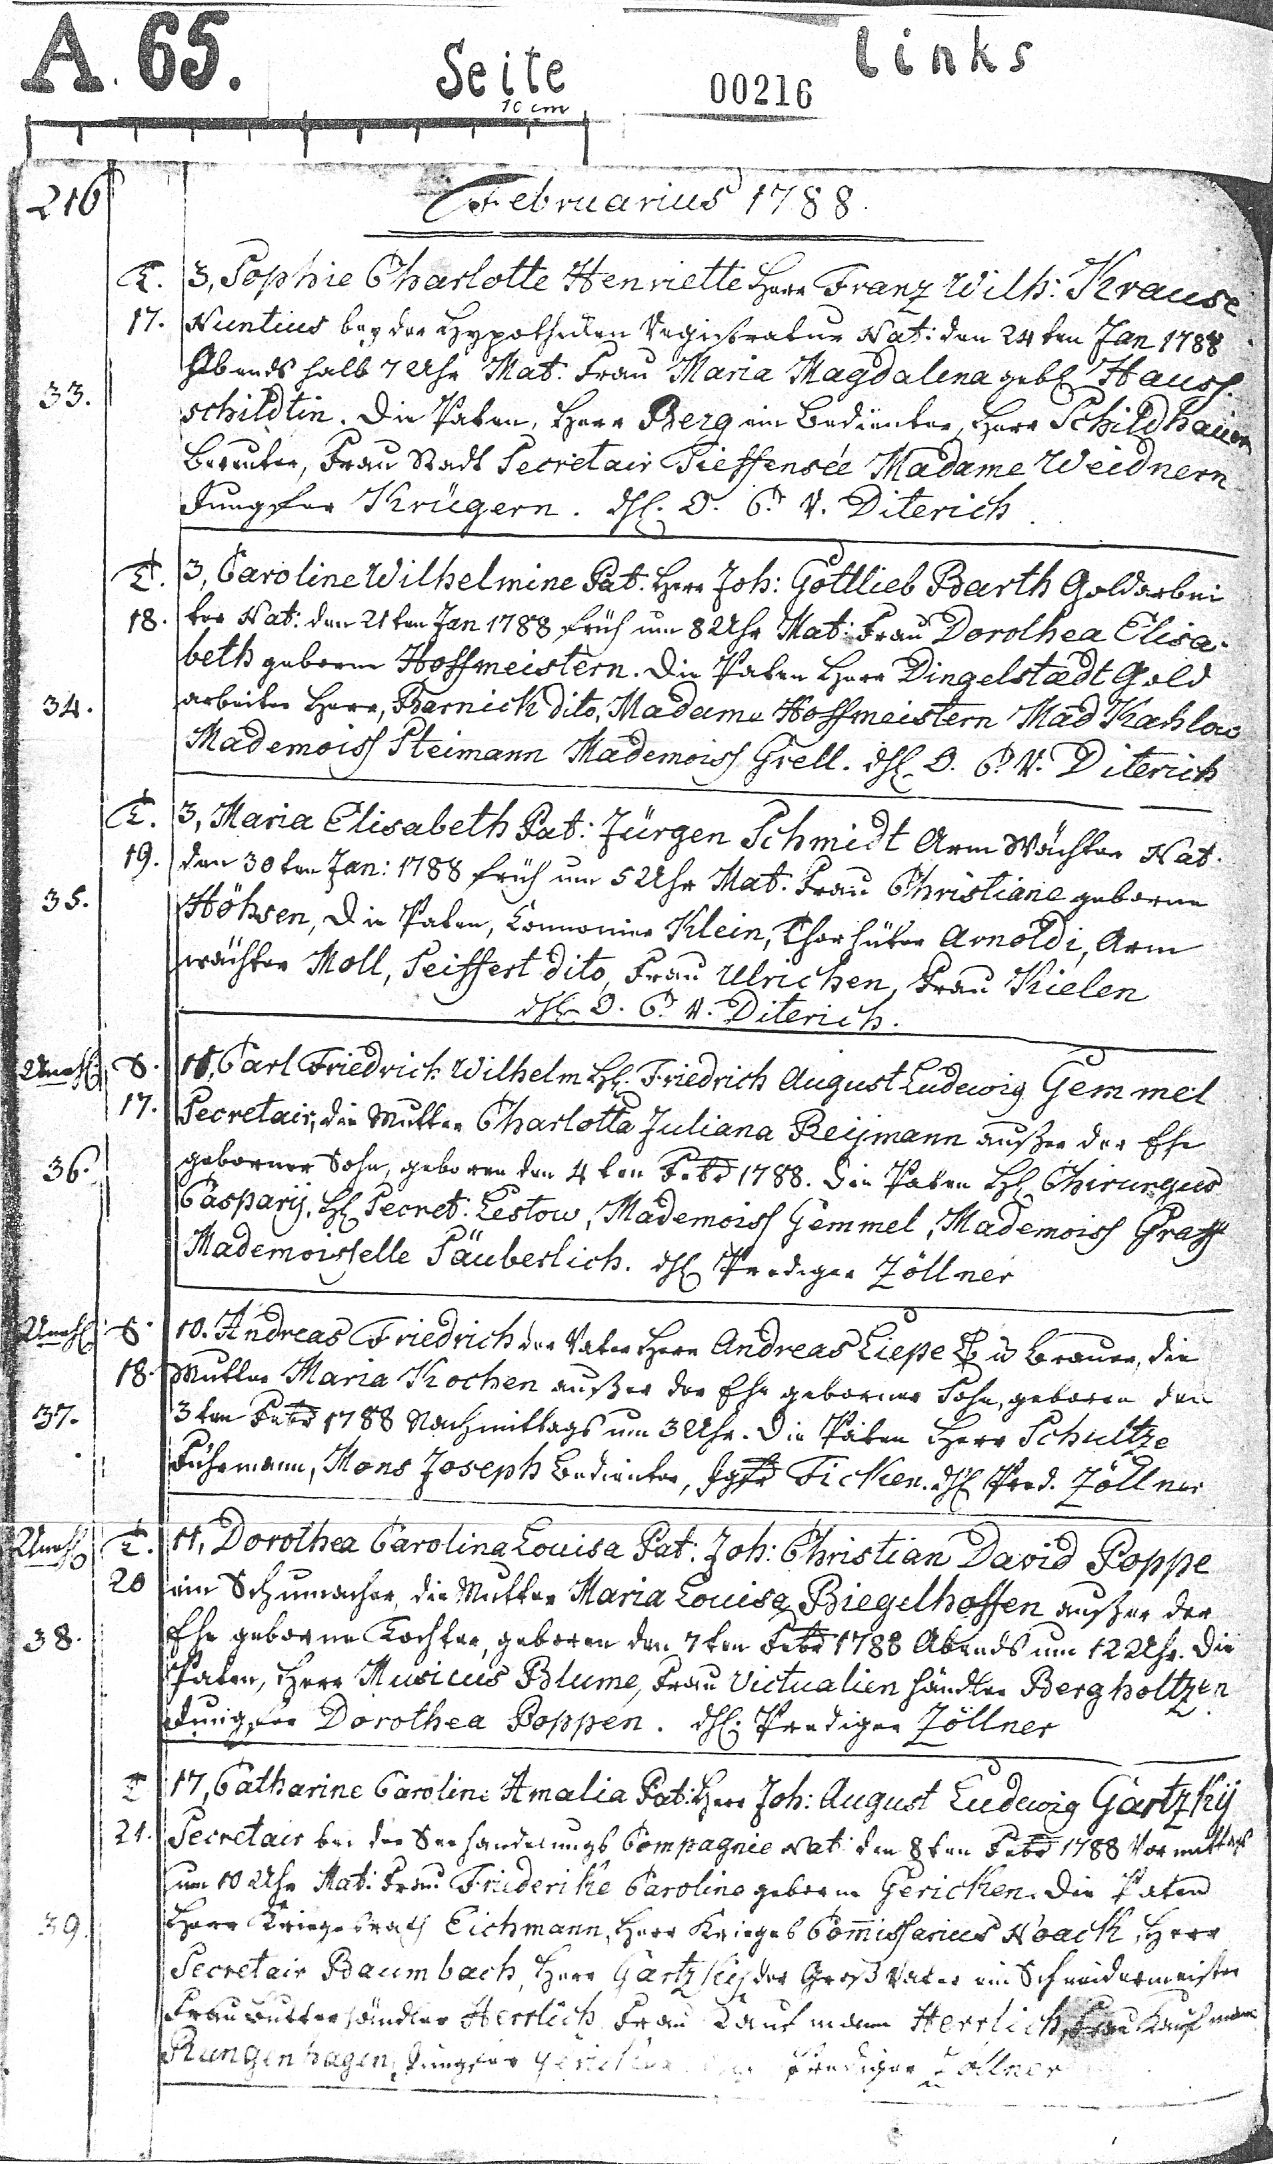 A. 65.
Seite
links
10 cm
00216
216
Februarius 1788.
T. 3, Sophie Charlotte Henriette Herr Franz Wilh: Krause
17. Nuntius bey der Hypothequen Registratur Nat: den 24ten Jan 1788
Abends halb 7 Uhr Mat: Frau Maria Magdalena gebl Hauss
33. schildtin. Die Paten, Herr Berg ein Bedienter, Herr Schildhauer
Bereuter, Frau Stadt Secretair Tieffensée Madame Weidnern
Jungfer Krügern. dHl. O. C. R. Diterich
T. 3, Caroline Wilhelmine Pat. Herr Joh: Gottlieb Barth Goldarbei
18. ter Nat: den 21ten Jan 1788 früh um 8 Uhr Mat: Frau Dorothea Elisa-
beth geborne Hoffmeistern. Die Paten Herr Dingelstædt Gold
34. arbeiter Herr, Barnick dito, Madame Hoffmeistern Mad Kahlow
Mademoiss Steimann Mademoiss Grell. dHl. O. C. R. Diterich
T. 3, Maria Elisabeth Pat: Jürgen Schmidt Arm Wächter Nat.
19. den 30ten Jan: 1788 früh um 5 Uhr Mat. Frau Christiane geborne
35. Höhsen, Die Paten, Canonier Klein, Thorhüter Arnoldi, Arm
wächter Moll, Seiffert dito, Frau Ulrichen, Frau Kielen
dHl. O. C. R. Diterich.
Unehl. S. 10, Carl Friedrich Wilhelm Hl. Friedrich August Ludewig Gemmel
17. Secretair, die Mutter Charlotta Juliana Reijmann außer der Ehe
36. geborner Sohn, geboren den 4ten Febr 1788. Die Paten Hl. Chirurgus
Casparij, Hl Secret. Lestow, Mademoiss Gemmel, Mademoiss Graff
Mademoisselle Säuberlich. dHl Prediger Zöllner
Unehl S. 10. Andreas Friedrich der Vater Herr Andreas Liepe B u Brauer, die
18. Mutter Maria Kochen außer der Ehe geborner Sohn, geboren den
37. 3ten Febr 1788 Nachmittags um 3 Uhr. Die Paten Herr Schultze
Fuhrmann, Mons Joseph Bedienter, Jgfr Ficken. dHl Pred. Zöllner
Unehl T. 11, Dorothea Carolina Louisa Pat: Joh: Christian David Poppe
20 ein Schumacher, die Mutter Maria Louisa Biegelhoffen außer der
38. Ehe geborne Tochter, geboren den 7ten Febr 1788 Abends um 12 Uhr. Die
Paten, Herr Musicus Blume, Frau Victualien händler Bergholtzen
Jungfer Dorothea Poppen. dHl. Prediger Zöllner
T 17, Catharine Caroline Amalia Pat: Herr Joh: August Ludewig Gärtzkij
21. Secretair bei der Seehandelungs Compagnie Nat: den 8ten Febr 1788 Vormittags
um 10 Uhr Mat: Frau Friderike Caroline geborne Gericken. Die Paten
39. Herr Kriegesrath Eichmann, Herr Krieges Commissarius Noack, Herr
Secretair Baumbach, Herr Gärtzkij der Groß Vater ein Schneidermeister
Frau Butterhändler Herrlich Frau Kaufmann Herrlich, Frau Kaufmann
Rungenhagen, Jungfer Gericken Prediger Zöllner